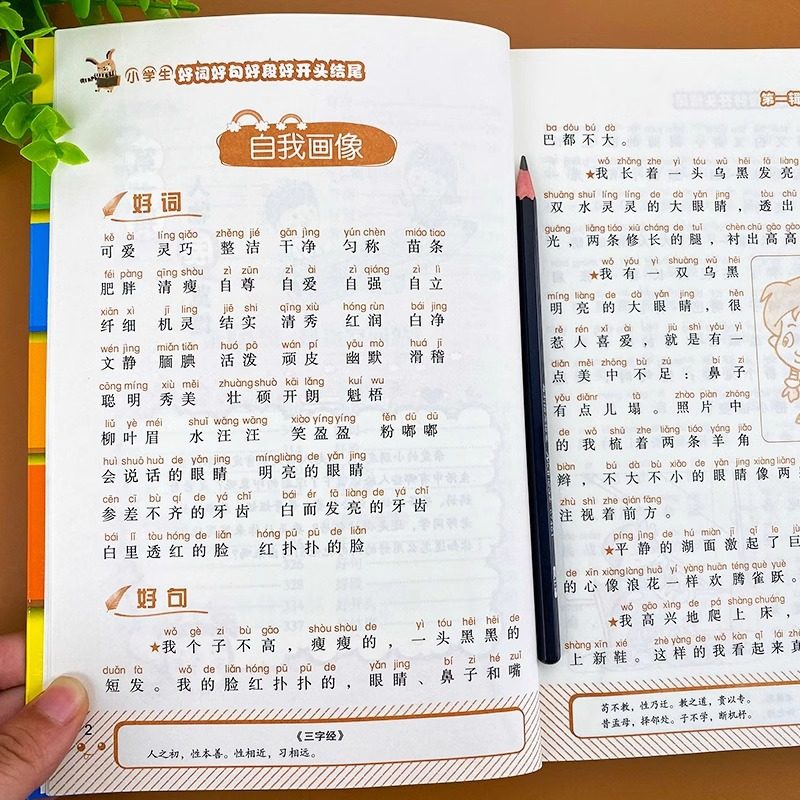 小学生好词好句好段好开头结尾
自我画像
好词
kě ài líng qiǎo zhěng jié gān jìng yún chèn miáo tiao
可爱 灵巧 整洁 干净 匀称 苗条
féi pàng qīng shòu zì zūn zì ài zì qiáng zì lì
肥胖 清瘦 自尊 自爱 自强 自立
xiān xì jī ling jiē shi qīng xiù hóng rùn bái jing
纤细 机灵 结实 清秀 红润 白净
wén jìng miǎn tiǎn huó pō wán pí yōu mò huá jī
文静 腼腆 活泼 顽皮 幽默 滑稽
cōng míng xiù měi zhuàng shuò kāi lǎng kuí wu
聪明 秀美 壮硕 开朗 魁梧
liǔ yè méi shuǐ wāng wāng xiào yíng yíng fěn dū dū
柳叶眉 水汪汪 笑盈盈 粉嘟嘟
huì shuō huà de yǎn jīng míng liàng de yǎn jīng
会说话的眼睛 明亮的眼睛
cēn cī bù qí de yá chǐ bái ér fā liàng de yá chǐ
参差不齐的牙齿 白而发亮的牙齿
bái lǐ tòu hóng de liǎn hóng pū pū de liǎn
白里透红的脸 红扑扑的脸
好句
wǒ gè zi bù gāo shòu shòu de yì tóu hēi hēi de
★我个子不高，瘦瘦的，一头黑黑的
duǎn fà wǒ de liǎn hóng pū pū de yǎn jing bí zi hé zuǐ
短发。我的脸红扑扑的，眼睛、鼻子和嘴
2
《三字经》
人之初，性本善。性相近，习相远。
第一辑
ba dōu bú dà
巴都不大。
wǒ zhǎng zhe yì tóu wū hēi fā liàng
★我长着一头乌黑发亮
shuāng shuǐ líng líng de dà yǎn jīng tòu chū
双水灵灵的大眼睛，透出
guāng liǎng tiáo xiū cháng de tuǐ chèn chū gāo gāo
光，两条修长的腿，衬出高高
wǒ yǒu yì shuāng wū hēi
★我有一双乌黑
míng liàng de dà yǎn jīng hěn
明亮的大眼睛，很
rě rén xǐ ài jiù shì yǒu yì
惹人喜爱，就是有一
diǎn měi zhōng bù zú bí zi
点美中不足：鼻子
yǒu diǎnr tā zhào piàn zhōng
有点儿塌。照片中
de wǒ shū zhe liǎng tiáo yáng jiǎo
的我梳着两条羊角
biàn bú dà bù xiǎo de yǎn jing xiàng liǎng
辫，不大不小的眼睛像两
zhù shì zhe qián fāng
注视着前方。
píng jìng de hú miàn jī qǐ le jù
★平静的湖面激起了巨
de xīn xiàng làng huā yí yàng huān téng què yuè
的心像浪花一样欢腾雀跃。
wǒ gāo xìng de pá shàng chuáng
★我高兴地爬上床，
shàng xīn xié zhè yàng de wǒ kàn qǐ lái zhēn
上新鞋。这样的我看起来真
苟不教，性乃迁。教之道，贵以专。
昔孟母，择邻处。子不学，断机杼。